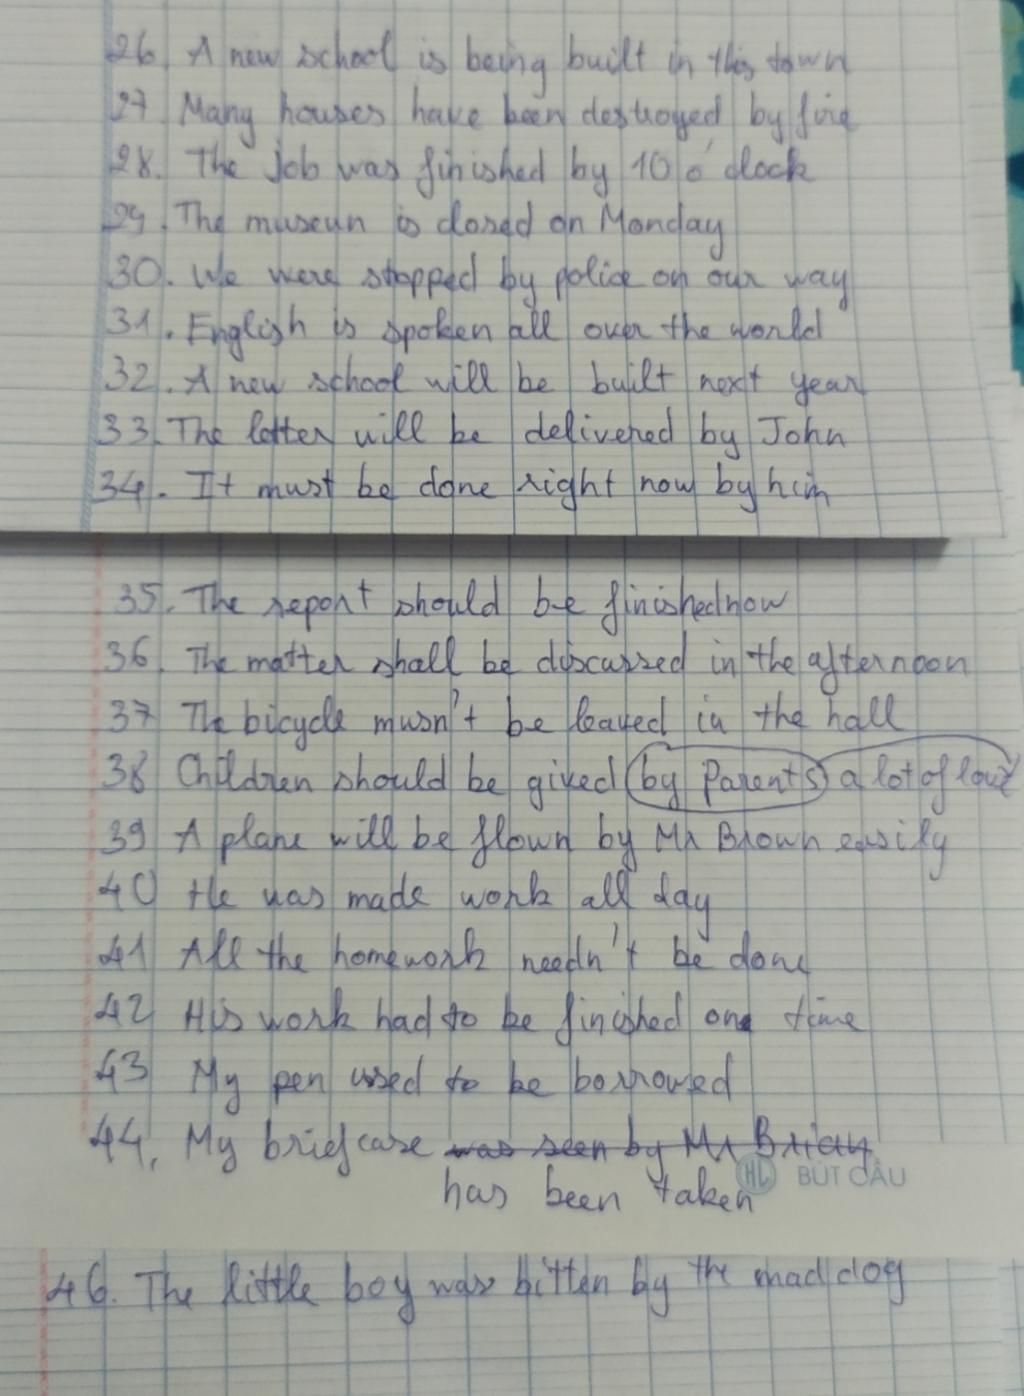 26. A new school is being built in this town
27 Many houses have been destroyed by fire
28. The job was finished by 10 o'clock
29. The museun is closed on Monday
30. We were stopped by police on our way
31. English is spoken all over the world
32. A new school will be built next year
33. The letter will be delivered by John
34. It must be done right now by him
35. The report should be finished now
36. The matter shall be discussed in the afternoon
37 The bicycle musn't be leaved in the hall
38 Children should be gived by parents a lot of love
39 A plane will be flown by Mr Brown easily
40 He was made work all day
41 All the homework needn't be done
42 His work had to be finished on time
43 My pen used to be borrowed
44. My briefcase was seen by Mr Brian
has been taken
HL BÚT CẦU
46. The little boy was bitten by the mad dog